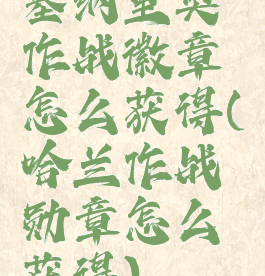 塞纳里奥
作战徽章
怎么获得(
哈兰作战
勋章怎么
获得)